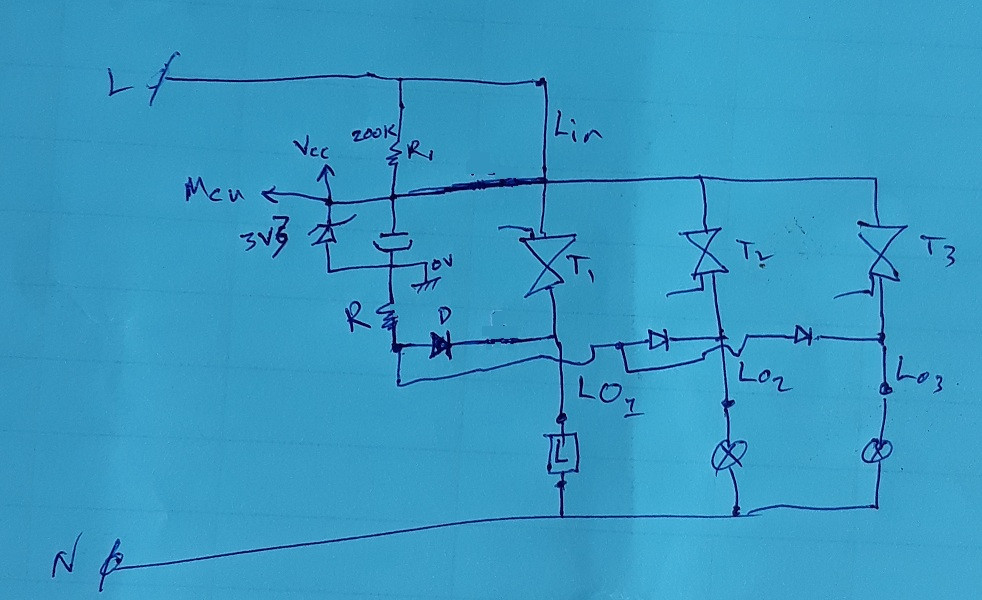 L
Lin
200K
R1
Vcc
Mcu
0V
T1
T2
T3
R
D
LO1
LO2
LO3
L
N